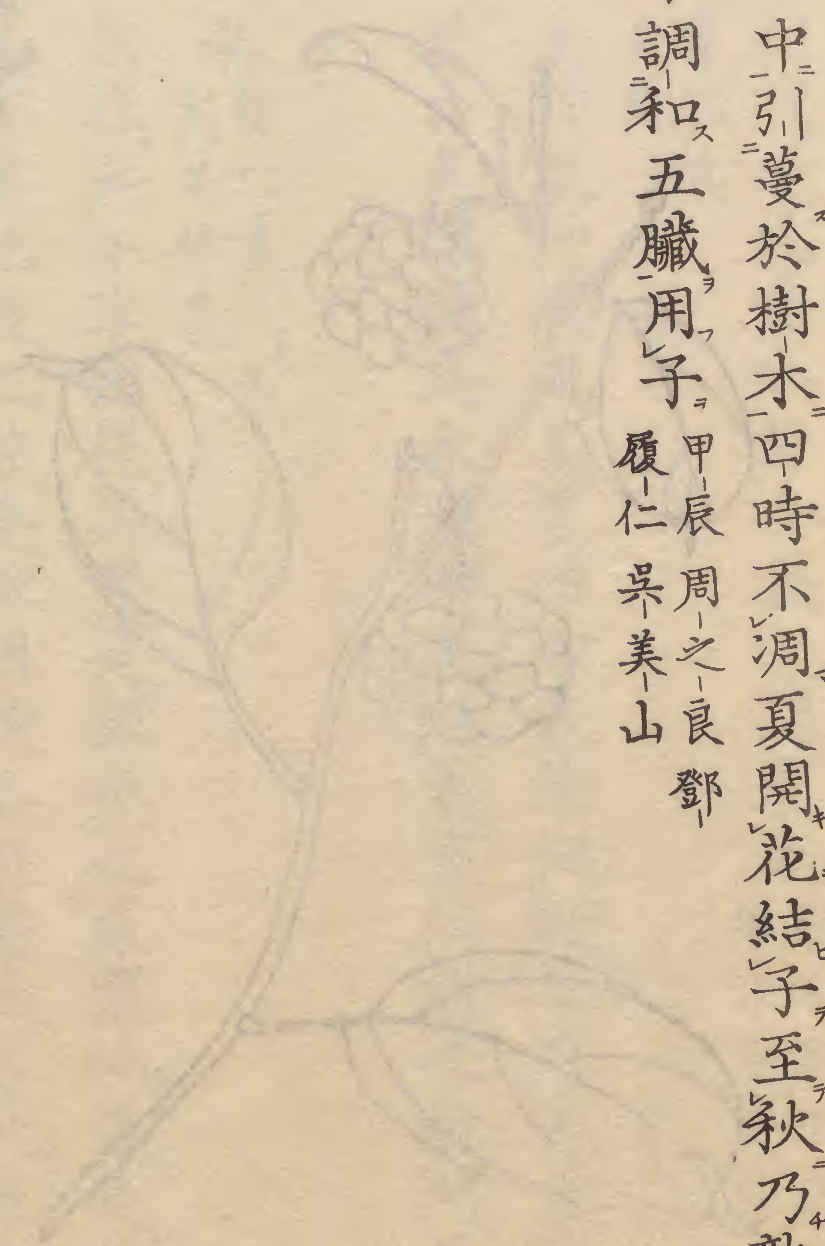 中引蔓於樹木四時不凋夏開花結子至秋乃
調和五臓用子
甲辰 周之良 鄧
履仁 吳美山